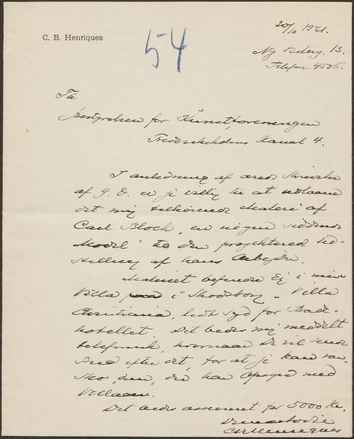 C. B. Henriques
54
20/6 1921.
Ny Vesterg. 13.
Telefon 4505.
Til
for Kunstforeningen
Frederiksholms Kanal 4.
I anledning af ærede Skrivelse
af g. D. er jeg villig til at udlaane
det mig tilhørende Maleri af
Carl Bloch, en siddende
Model til den projekterede Ud-
stilling af hans Arbejder.
Maleriet befinder sig i min
Villa i Skodsborg, Villa
lidt Syd for Bade-
hotellet. Det bedes mig meddelt
telefonisk, hvornaar De vil sende
Bud efter det, for at jeg kan
med
Villaen.
Det bedes assureret for 5000 Kr.
CBHenriques